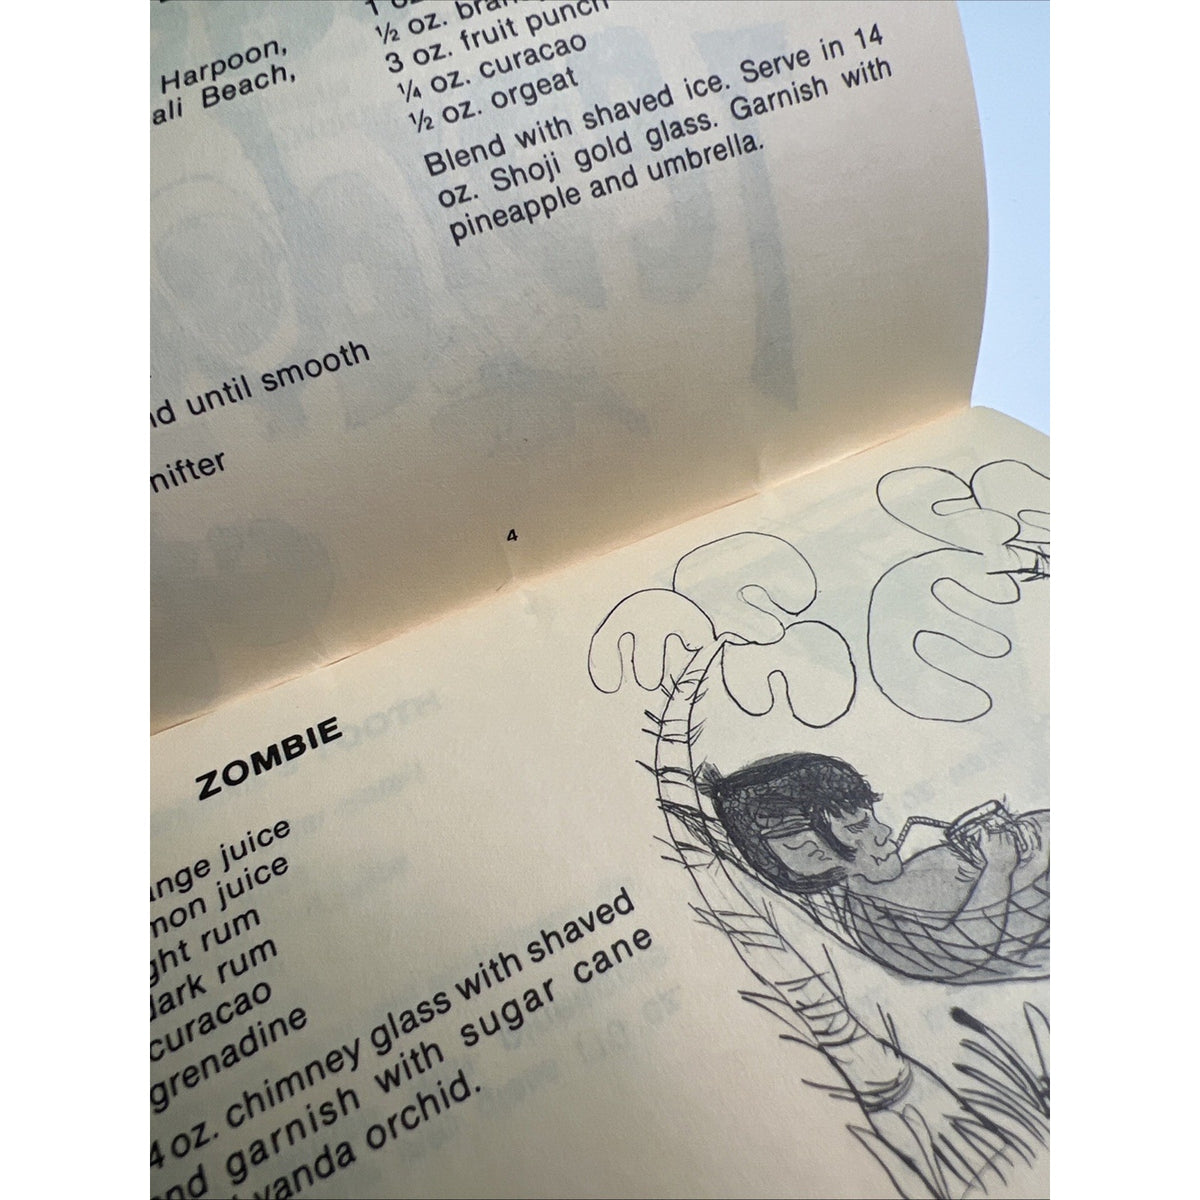 Harpoon,
ali Beach,
½ oz.
3 oz. fruit punch
¼ oz. curacao
½ oz. orgeat
Blend with shaved ice. Serve in 14
oz. Shoji gold glass. Garnish with
pineapple and umbrella.
until smooth
4
ZOMBIE
juice
juice
rum
rum
curacao
grenadine
4 oz. chimney glass with shaved
garnish with sugar cane
vanda orchid.